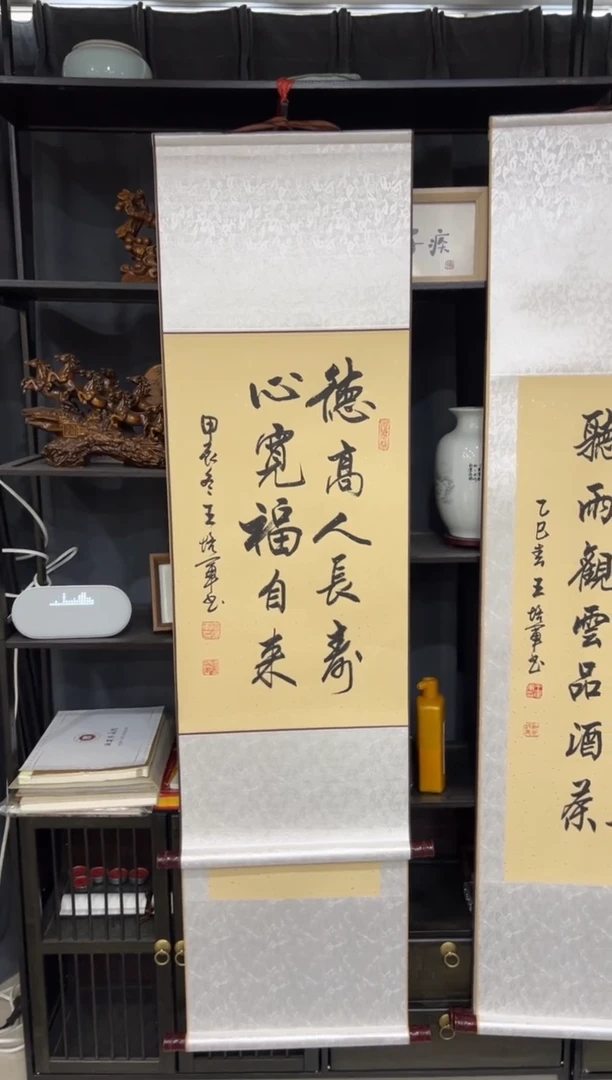 德高人長壽
心寬福自来
甲辰冬王培軍书
聽雨觀雲品酒茶
乙巳春王培軍书